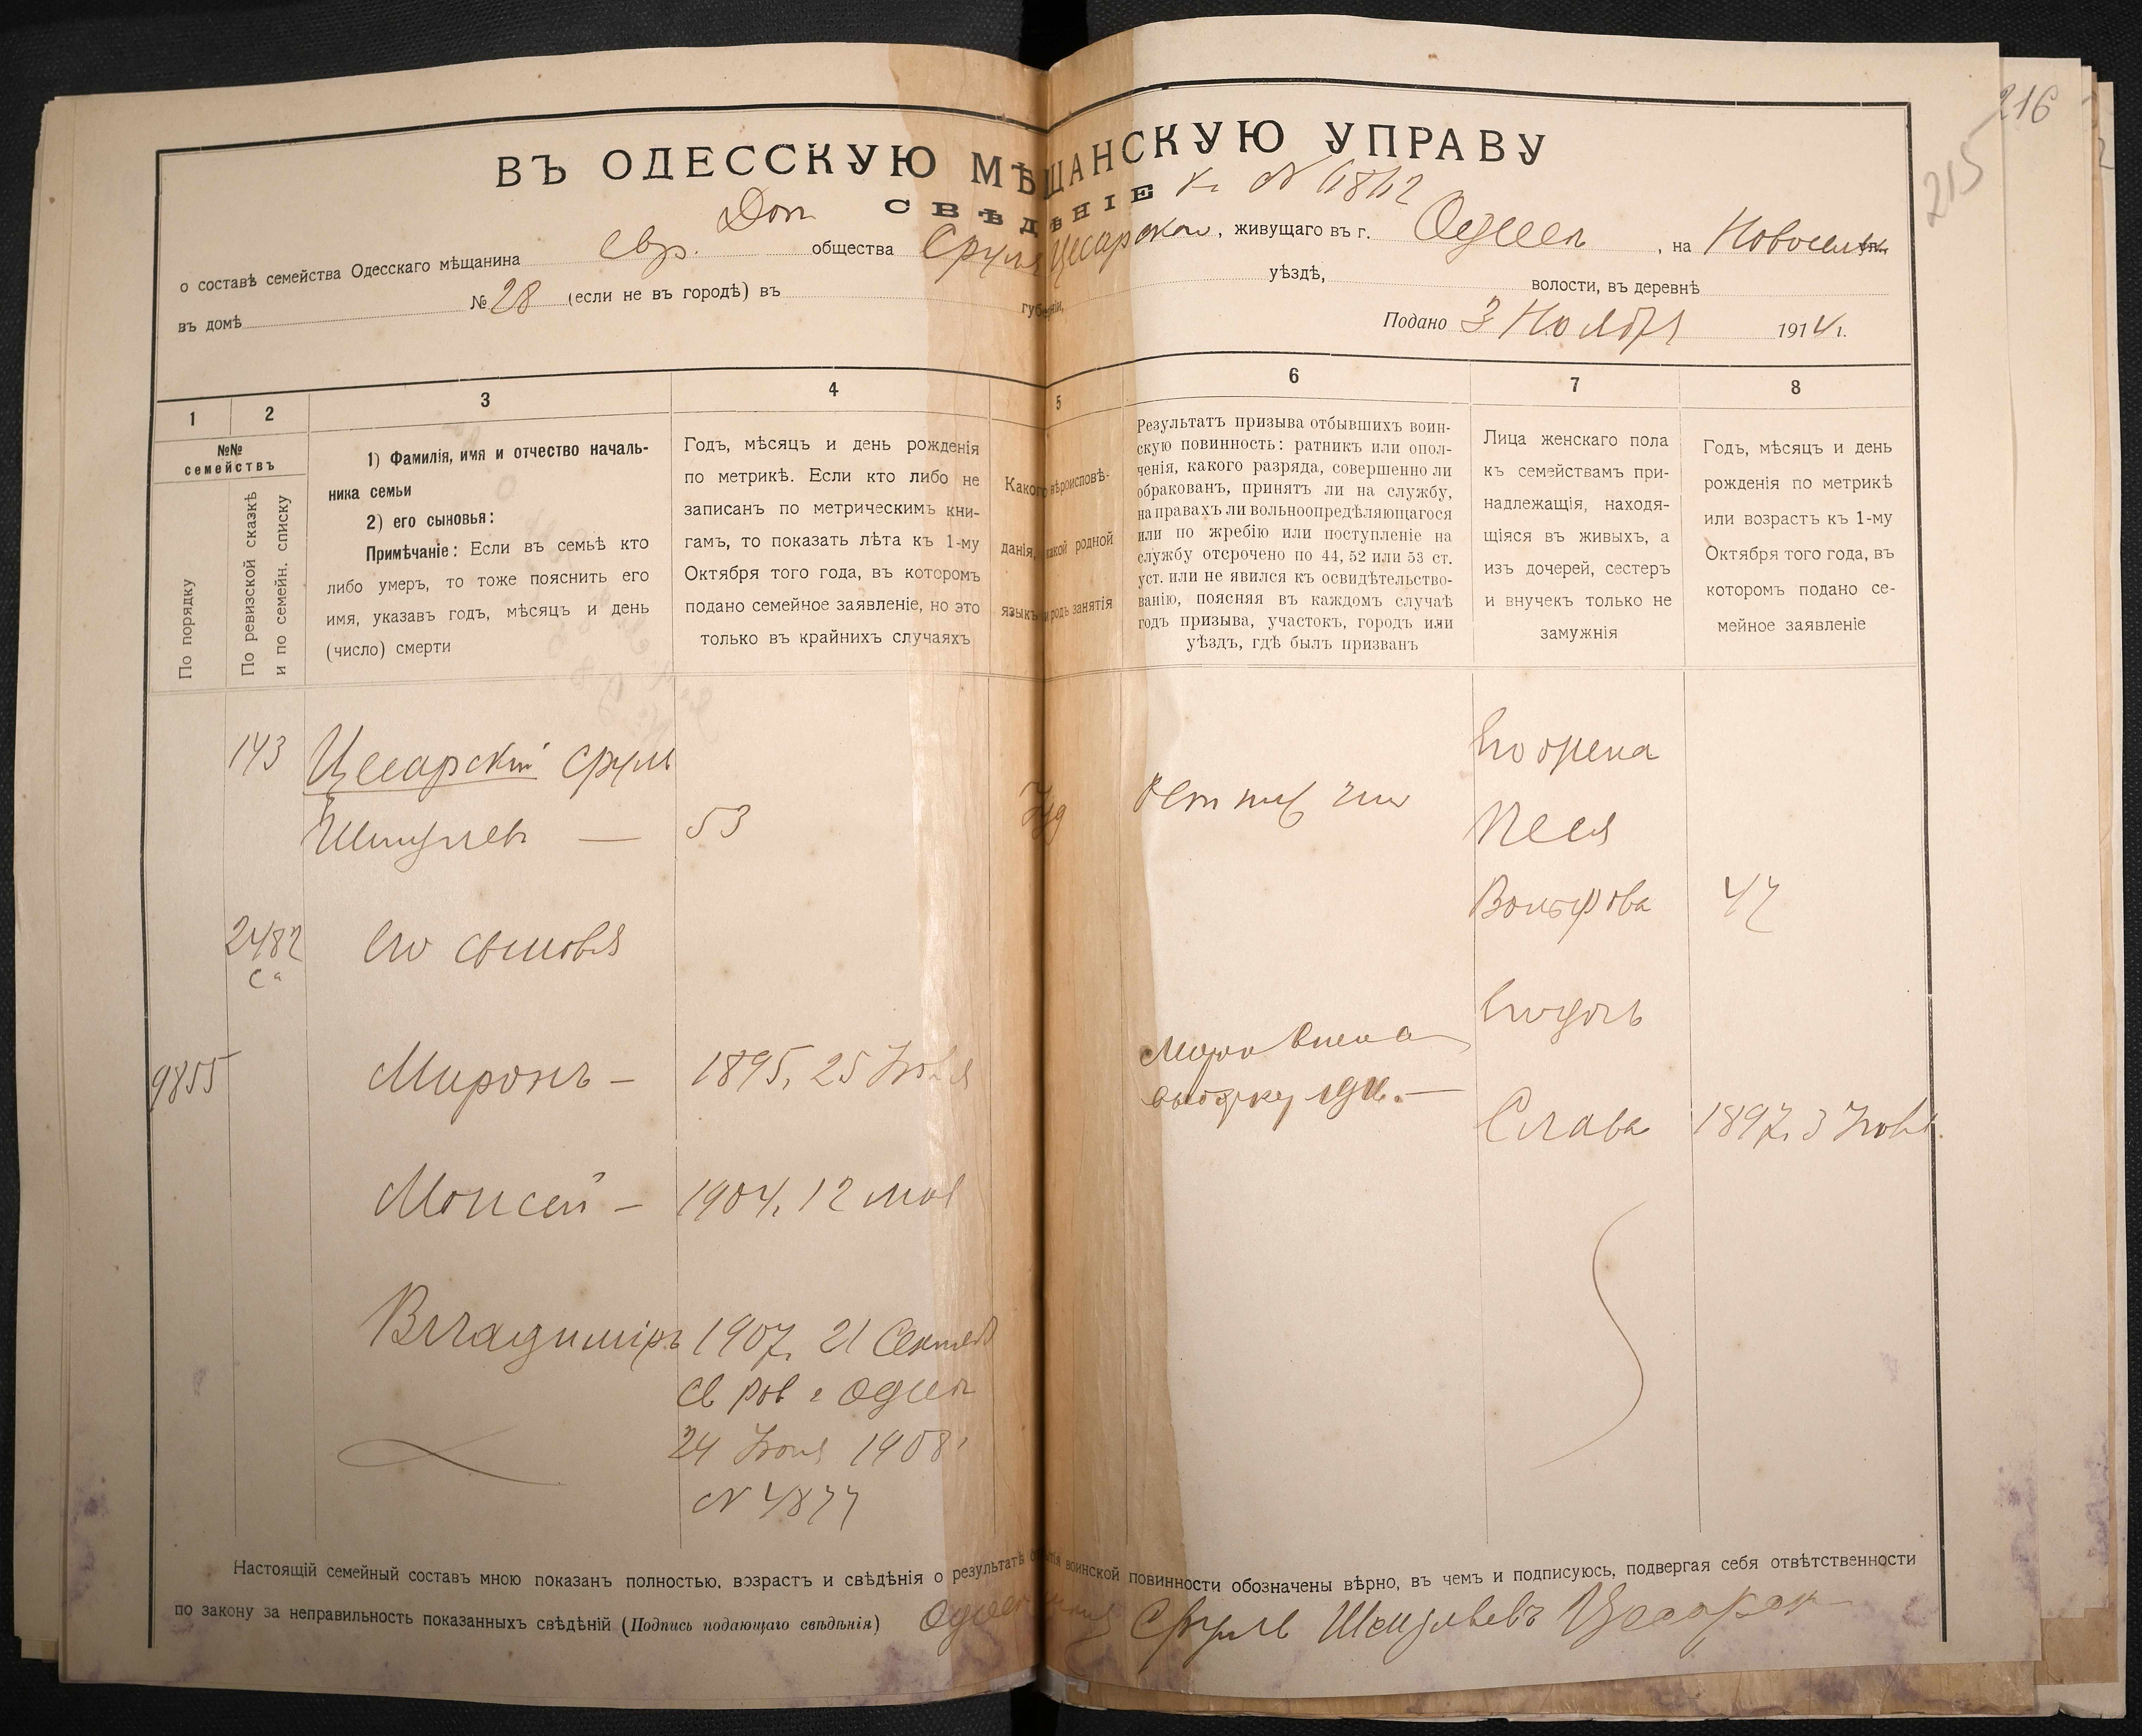 216
215
ВЪ ОДЕССКУЮ МѢЩАНСКУЮ УПРАВУ
Доп
СВѢДѢНІЕ к № 6812
о составѣ семейства Одесскаго мѣщанина евр. общества Сруля Цесарскаго, живущаго въ г. Одессѣ, на Новосельск. ул.
въ домѣ № 28 (если не въ городѣ) въ губерніи, уѣздѣ, волости, въ деревнѣ
Подано 3 Ноября 1914 г.
1 2 3 4 5 6 7 8
№№ семействъ
По порядку
По ревизской сказкѣ
и по семейн. списку
1) Фамилія, имя и отчество началь-
ника семьи
2) его сыновья:
Примѣчаніе: Если въ семьѣ кто
либо умеръ, то тоже пояснить его
имя, указавъ годъ, мѣсяцъ и день
(число) смерти
Годъ, мѣсяцъ и день рожденія
по метрикѣ. Если кто либо не
записанъ по метрическимъ кни-
гамъ, то показать лѣта къ 1-му
Октября того года, въ которомъ
подано семейное заявленіе, но это
только въ крайнихъ случаяхъ
Какого вѣроисповѣ-
данія, какой родной
языкъ и родъ занятія
Результатъ призыва отбывшихъ воин-
скую повинность: ратникъ или опол-
ченія, какого разряда, совершенно ли
обракованъ, принятъ ли на службу,
на правахъ ли вольноопредѣляющагося
или по жребію или поступленіе на
службу отсрочено по 44, 52 или 53 ст.
уст. или не явился къ освидѣтельство-
ванію, поясняя въ каждомъ случаѣ
годъ призыва, участокъ, городъ или
уѣздъ, гдѣ былъ призванъ
Лица женскаго пола
къ семействамъ при-
надлежащія, находя-
щіяся въ живыхъ, а
изъ дочерей, сестеръ
и внучекъ только не
замужнія
Годъ, мѣсяцъ и день
рожденія по метрикѣ
или возрастъ къ 1-му
Октября того года, въ
которомъ подано се-
мейное заявленіе
143 Цесарскій Сруль
Шмулев — 53 Іуд
Его жена
Песя
Вольфова 47
2482 Его сыновья
са
Его дочь
9855 Миронъ — 1895, 25 Іюля
Слава 1897. 3 Іюня
Моисей — 1904, 12 мая
Владиміръ 1907, 21 Сентяб
Св ров г Одессы
24 Іюня 1908
№ 4877
Настоящій семейный составъ мною показанъ полностью, возрастъ и свѣдѣнія о результатѣ отбытія воинской повинности обозначены вѣрно, въ чемъ и подписуюсь, подвергая себя отвѣтственности
по закону за неправильность показанныхъ свѣдѣній (Подпись подающаго свѣдѣнія) Сруль Шмулевъ Цесарск